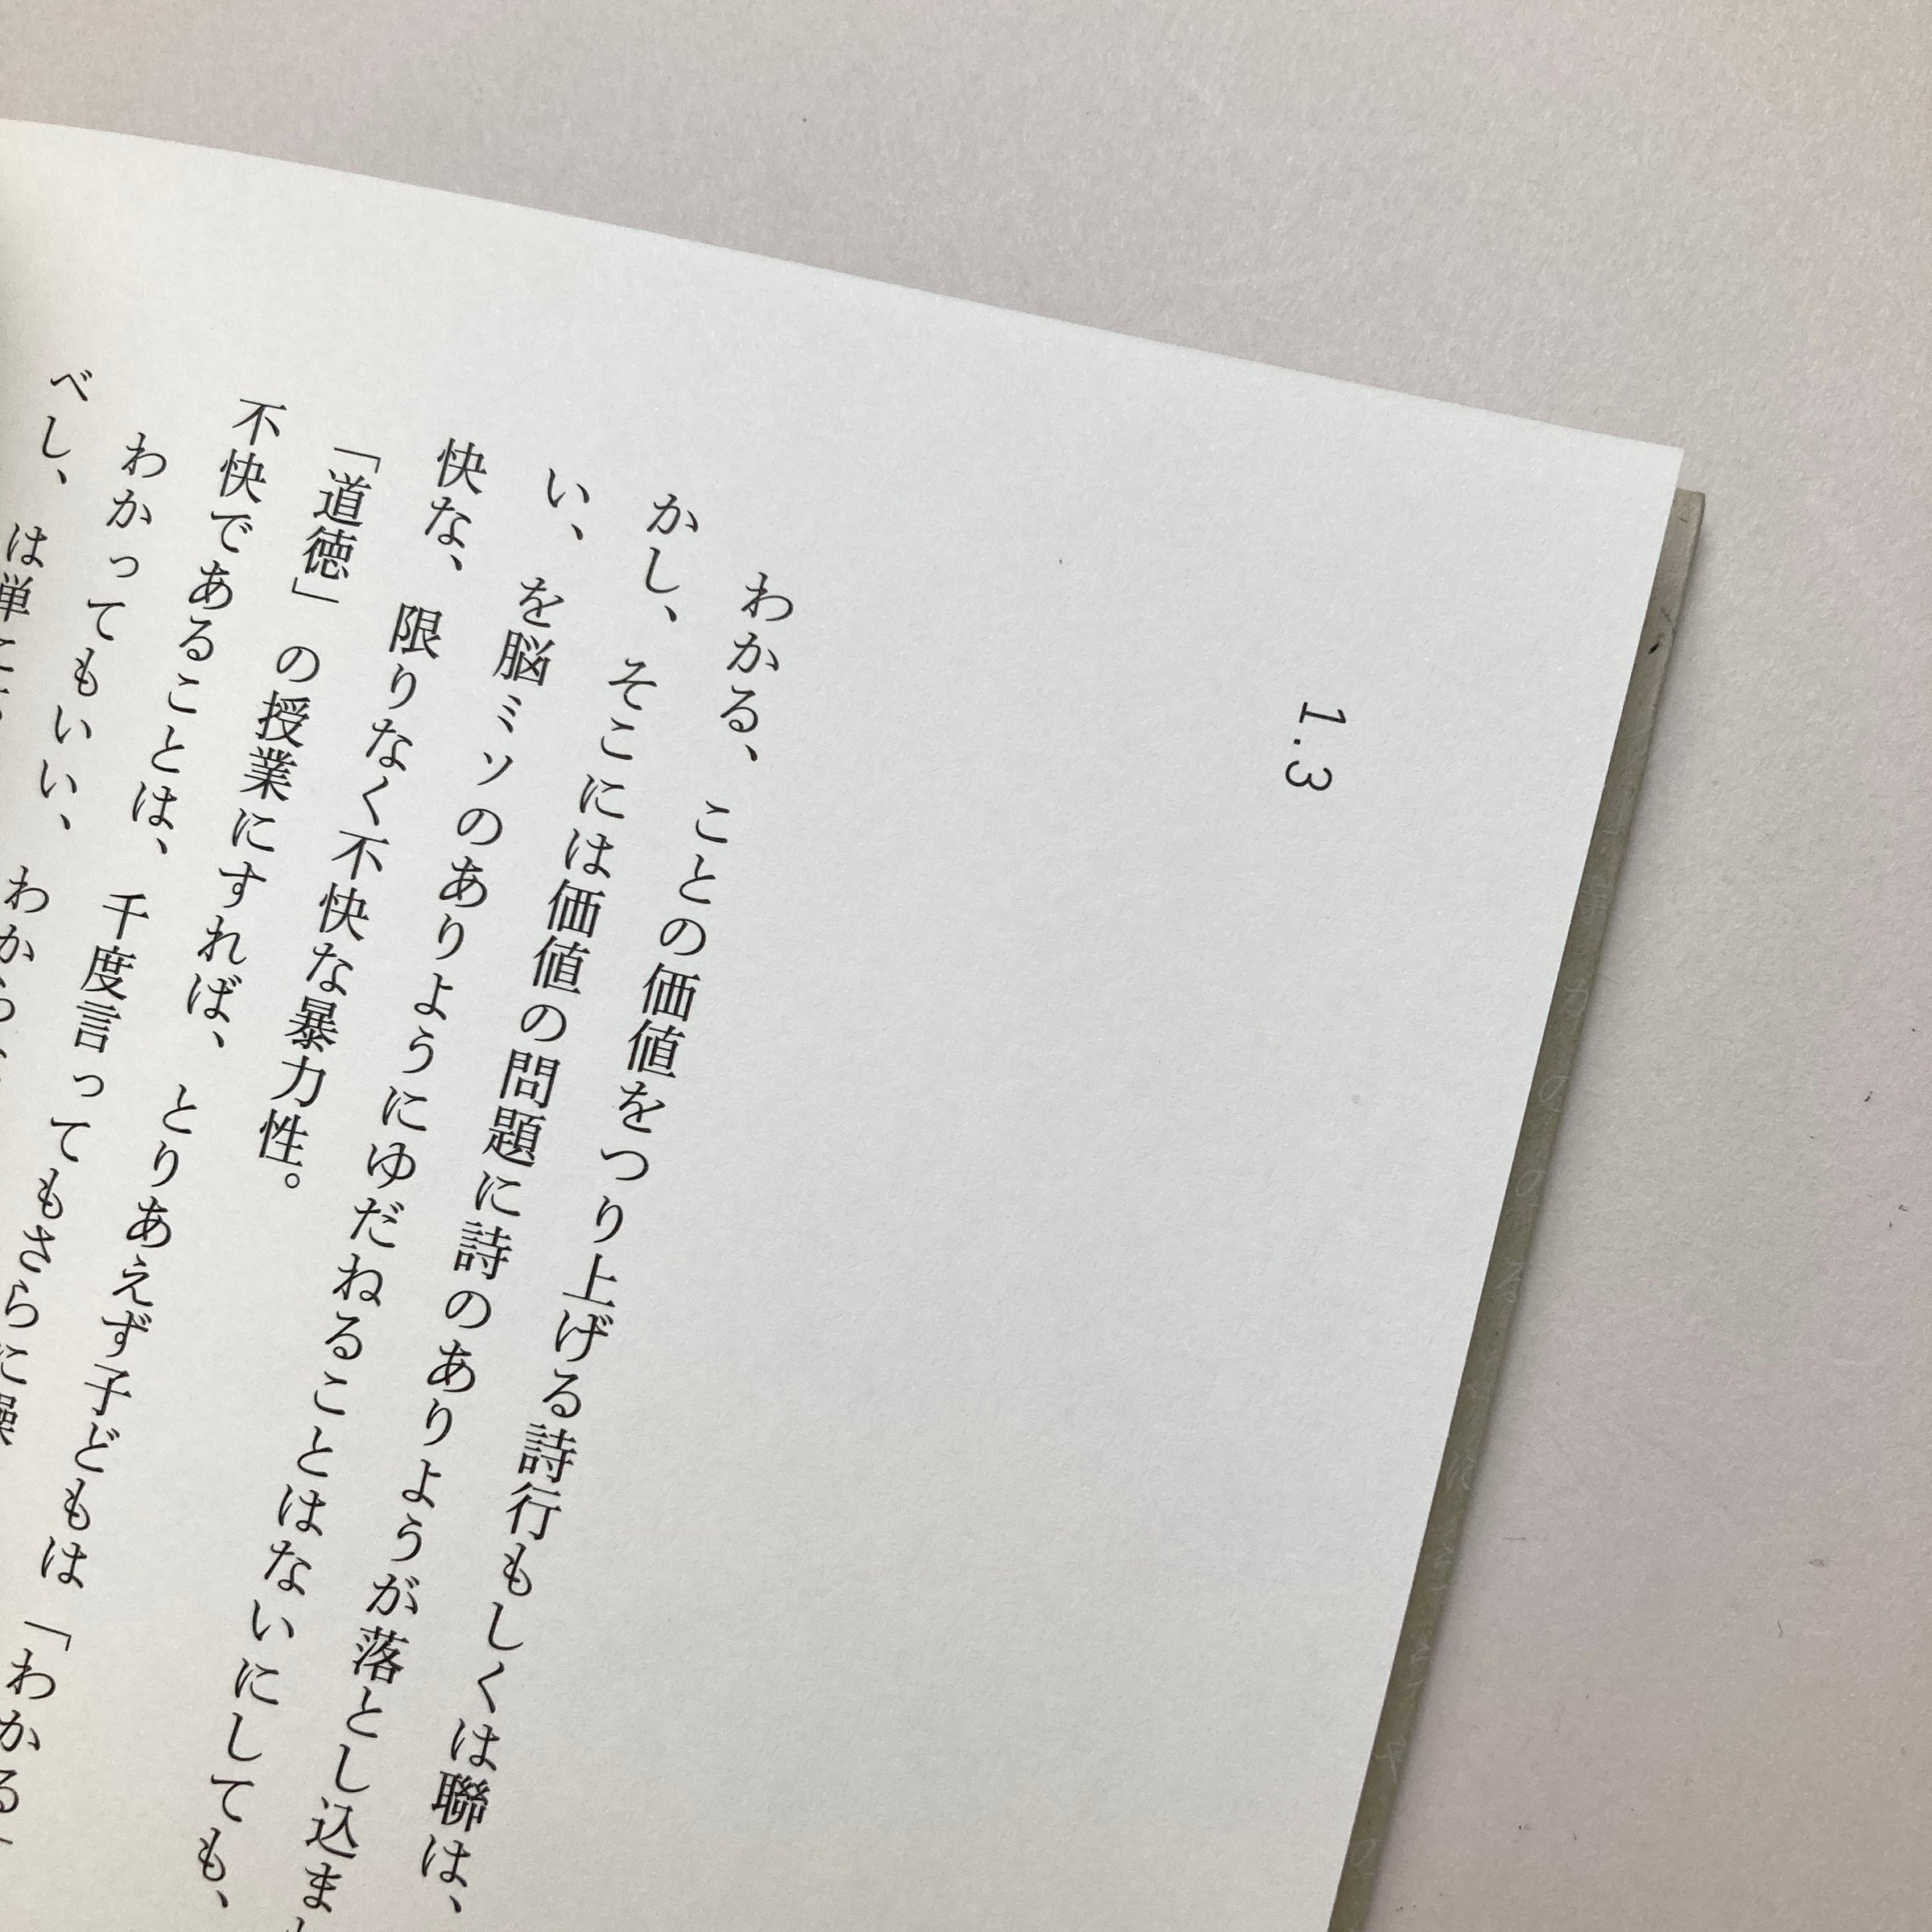 1.3
わかる、ことの価値をつり上げる詩行もしくは聯は、
かし、そこには価値の問題に詩のありようが落とし込ま
い、を脳ミソのありようにゆだねることはないにしても、
快な、限りなく不快な暴力性。
「道徳」の授業にすれば、とりあえず子どもは「わかる」
不快であることは、千度言ってもさらに
わかってもいい、わから
べし、は単に